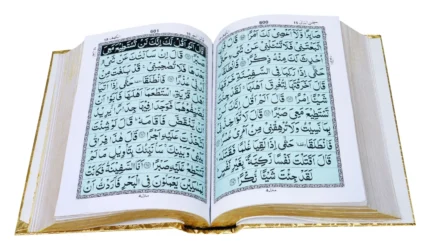 صَابِرًا وَّلَا اَعْصِىْ لَكَ اَمْرًا قَالَ فَاِنِ
اتَّبَعْتَنِىْ فَلَا تَسْـَٔلْنِىْ عَنْ شَىْءٍ
حَتّٰى اُحْدِثَ لَكَ مِنْهُ ذِكْرًا فَانْطَلَقَا
حَتّٰى اِذَا رَكِبَا فِى السَّفِيْنَةِ خَرَقَهَا
قَالَ اَخَرَقْتَهَا لِتُغْرِقَ اَهْلَهَا لَقَدْ جِئْتَ
شَيْـًٔا اِمْرًا قَالَ اَلَمْ اَقُلْ اِنَّكَ لَنْ
تَسْتَطِيْعَ مَعِىَ صَبْرًا قَالَ لَا تُؤَاخِذْنِىْ
بِمَا نَسِيْتُ وَلَا تُرْهِقْنِىْ مِنْ اَمْرِىْ عُسْرًا
فَانْطَلَقَا حَتّٰى اِذَا لَقِيَا غُلٰمًا فَقَتَلَهٗ
قَالَ اَقَتَلْتَ نَفْسًا زَكِيَّةً بِغَيْرِ نَفْسٍ
لَقَدْ جِئْتَ شَيْـًٔا نُّكْرًا
قَالَ اَلَمْ اَقُلْ لَّكَ اِنَّكَ لَنْ تَسْتَطِيْعَ مَعِىَ
صَبْرًا قَالَ اِنْ سَاَلْتُكَ عَنْ شَىْءٍ
بَعْدَهَا فَلَا تُصٰحِبْنِىْ قَدْ بَلَغْتَ مِنْ
لَّدُنِّىْ عُذْرًا فَانْطَلَقَا حَتّٰى اِذَا اَتَيَا
اَهْلَ قَرْيَةِ اسْتَطْعَمَا اَهْلَهَا فَاَبَوْا اَنْ
يُّضَيِّفُوْهُمَا فَوَجَدَا فِيْهَا جِدَارًا يُّرِيْدُ
اَنْ يَّنْقَضَّ فَاَقَامَهٗ قَالَ لَوْ شِئْتَ
لَتَّخَذْتَ عَلَيْهِ اَجْرًا قَالَ هٰذَا فِرَاقُ
بَيْنِىْ وَبَيْنِكَ سَاُنَبِّئُكَ بِتَاْوِيْلِ مَا لَمْ
تَسْتَطِعْ عَّلَيْهِ صَبْرًا اَمَّا السَّفِيْنَةُ فَكَانَتْ
لِمَسٰكِيْنَ يَعْمَلُوْنَ فِى الْبَحْرِ فَاَرَدْتُّ اَنْ